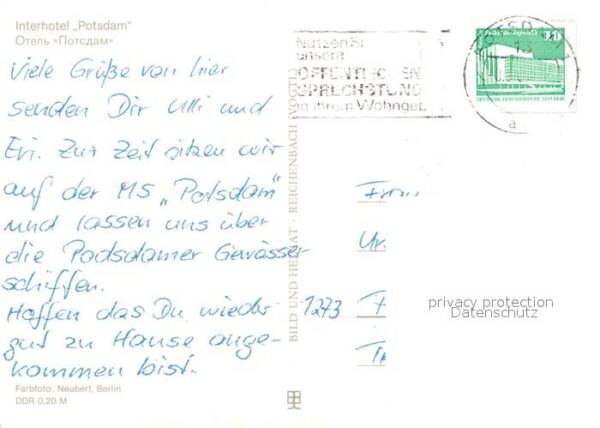 Interhotel „Potsdam"
Отель «Потсдам»
Viele Grüße von hier
senden Dir Ulli und
Evi. Zur Zeit sitzen wir
auf der MS „Potsdam"
und lassen uns über
die Podsdamer Gewässer
schiffen.
Hoffen das Du wieder
gut zu Hause ange-
kommen bist.
Farbfoto: Neubert, Berlin
DDR 0,20 M
BILD UND HEIMAT · REICHENBACH
Nutzen Si
unsere
ÖFFENTLICHEN
SPRECHSTUND
in Ihrem Wohngeb
POTSDAM
a
Palast der Republik
10
DEUTSCHE DEMOKRATISCHE REPUBLIK
Ur.
1273
privacy protection
Datenschutz